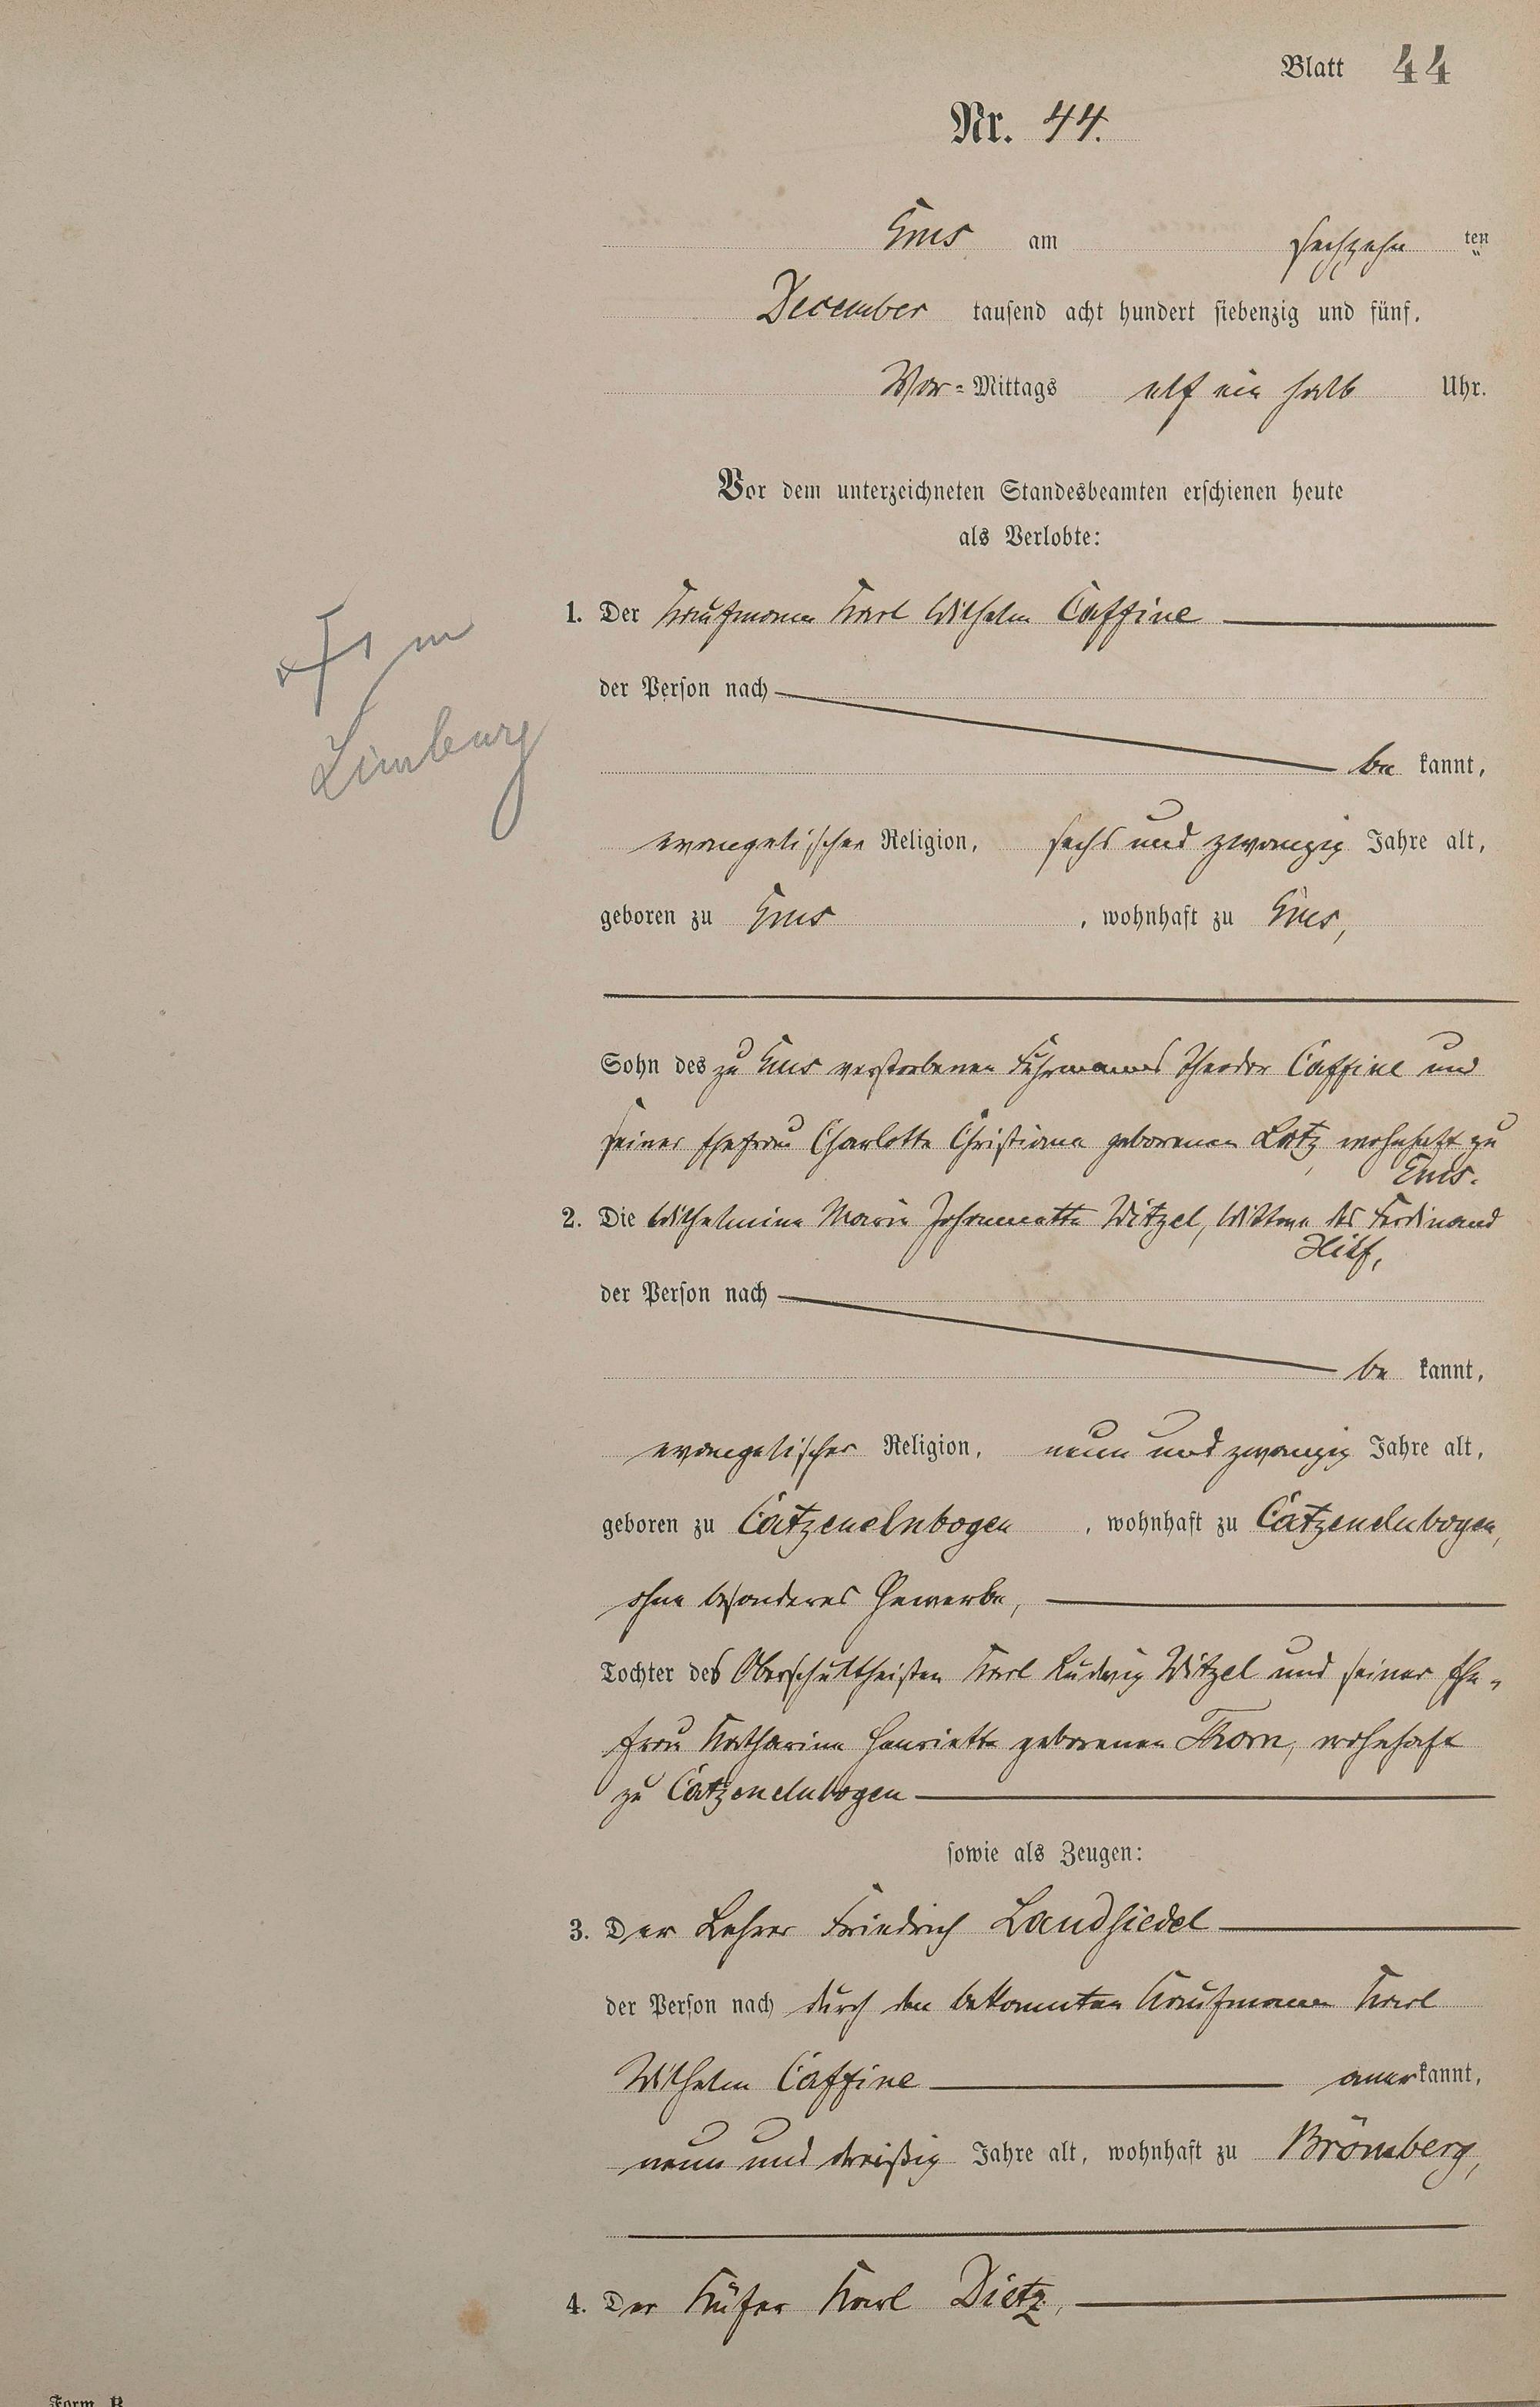 Blatt 44
Nr. 44.
Ems am sechzehn ten
December tausend acht hundert siebenzig und fünf.
Vor=Mittags elf ein halb Uhr.
Vor dem unterzeichneten Standesbeamten erschienen heute
als Verlobte:
1. Der Kaufmann Karl Wilhelm Caffine
der Person nach
be kannt,
evangelischer Religion, sechs und zwanzig Jahre alt,
geboren zu Ems, wohnhaft zu Ems,
Sohn des zu Ems verstorbenen Fuhrmannes Theodor Caffine und
seiner Ehefrau Charlotte Christiane geborenen Lotz wohnhaft zu
Ems.
2. Die Wilhelmine Marie Johannette Witzel, Wittwe des Ferdinand
Hilf,
der Person nach
be kannt,
evangelischer Religion, neun und zwanzig Jahre alt,
geboren zu Catzenelnbogen, wohnhaft zu Catzenelnbogen,
ohne besonderes Gewerbe,
Tochter des Oberschultheisen Karl Ludwig Witzel und seiner Ehe-
frau Katharina Henriette geborenen Thorn, wohnhaft
zu Catzenelnbogen
sowie als Zeugen:
3. Der Lehrer Friedrich Landsiedel
der Person nach durch den bekannten Kaufmann Karl
Wilhelm Caffine anerkannt,
neun und dreißig Jahre alt, wohnhaft zu Bromberg,
4. Der Küfer Karl Dietz,
Limburg
Form. B.